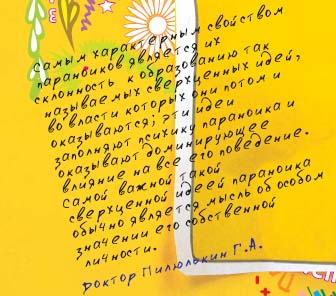 Самым характерным свойством
параноиков является их
склонность к образованию так
называемых сверхценных идей,
во власти которых они потом и
оказываются; эти идеи
заполняют психику параноика и
оказывают доминирующее
влияние на все его поведение.
Самой важной такой
сверхценной идеей параноика
обычно является мысль об особом
значении его собственной
личности.
Доктор Пилюлькин Г.А.